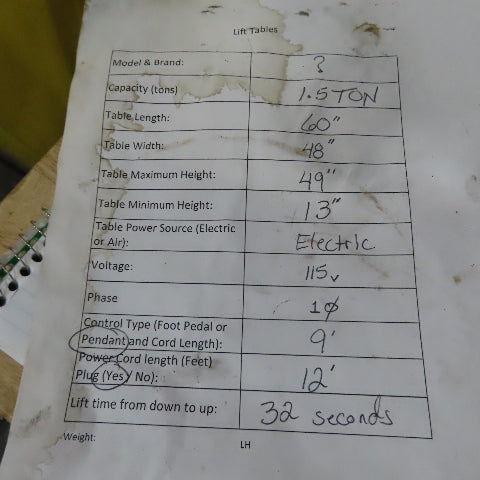 Lift Tables
Model & Brand: ?
Capacity (tons) 1.5 TON
Table Length: 60"
Table Width: 48"
Table Maximum Height: 49"
Table Minimum Height: 13"
Table Power Source (Electric
or Air): Electric
Voltage: 115v
Phase 1Ø
Control Type (Foot Pedal or
Pendant and Cord Length): 9'
Power Cord length (Feet)
Plug (Yes / No): 12'
Lift time from down to up: 32 seconds
Weight:
LH